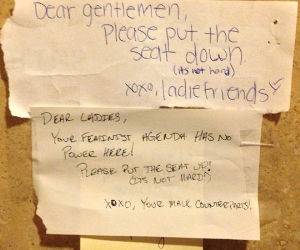 Dear gentlemen,
Please put the
seat down.
(its not hard)
xoxo, ladiefriends
DEAR LADIES,
YOUR FEMINIST AGENDA HAS NO
POWER HERE!
PLEASE PUT THE SEAT UP!
(ITS NOT HARD!)
XOXO, YOUR MALE COUNTERPARTS!